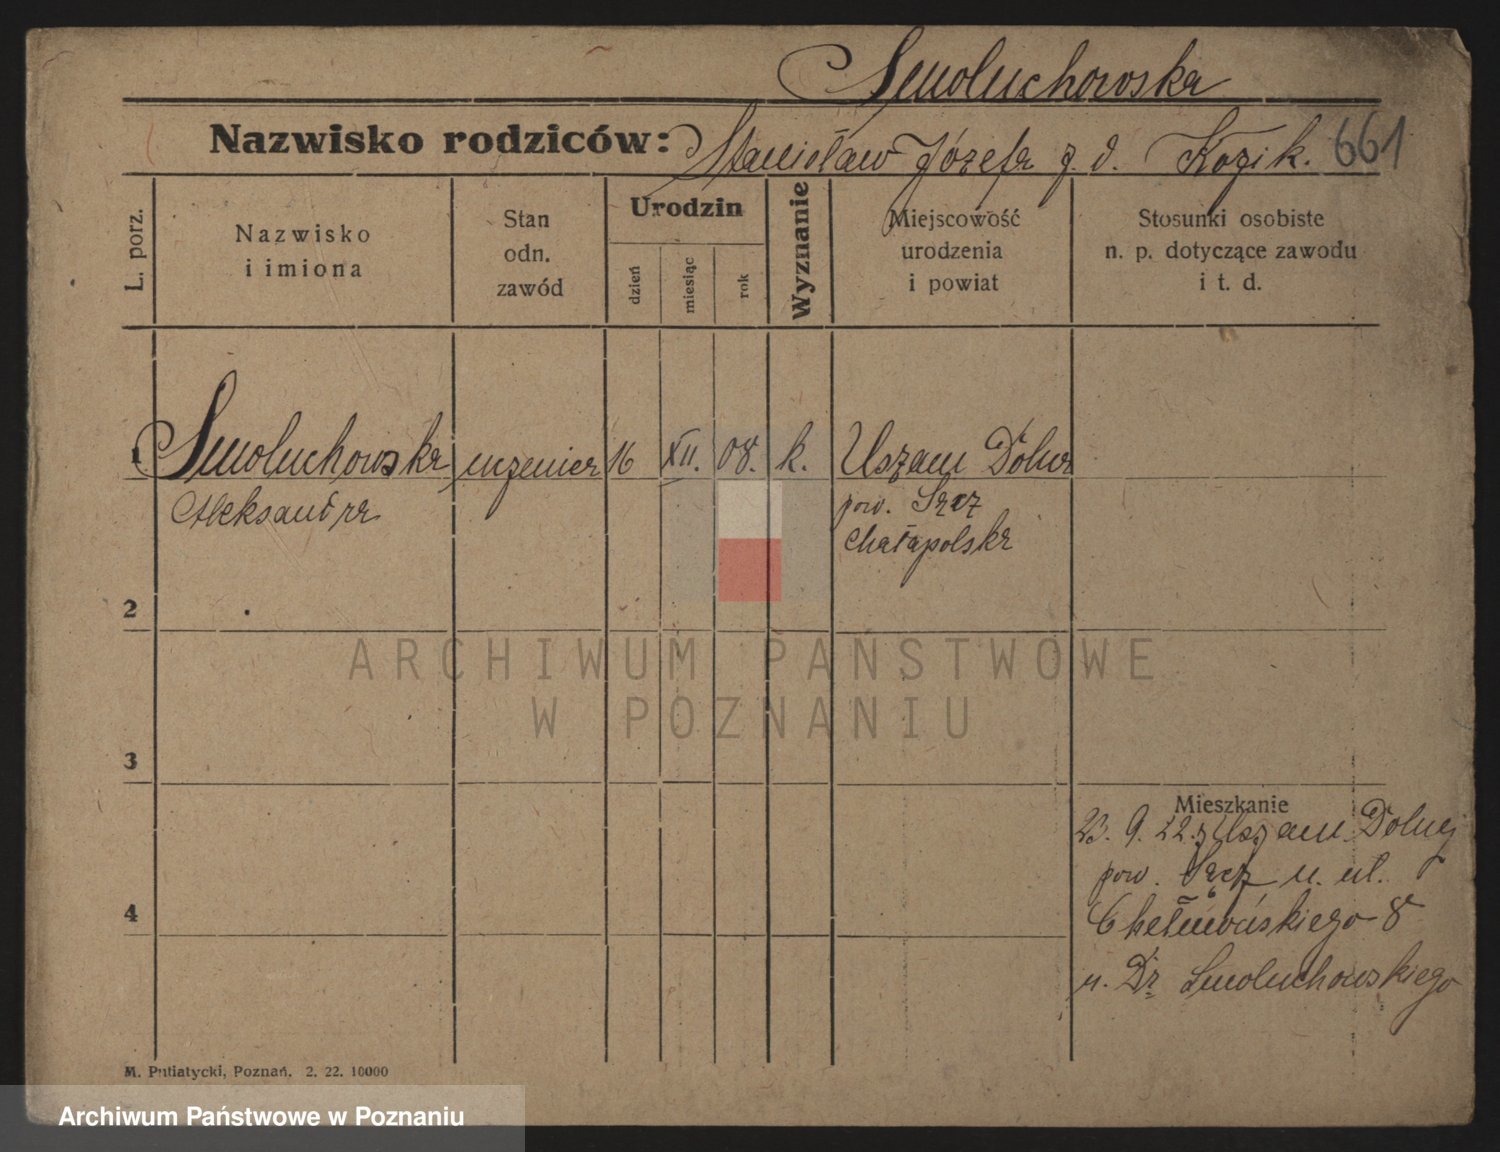 Smoluchowska
Nazwisko rodziców: Stanisław Józefa z. d. Kozik. 661
L. porz.
Nazwisko
i imiona
Stan
odn.
zawód
Urodzin
dzień
miesiąc
rok
Wyznanie
Miejscowość
urodzenia
i powiat
Stosunki osobiste
n. p. dotyczące zawodu
i t. d.
1 Smoluchowska 16 XII. 08. k. Dolna
Aleksandra pow. Sącz
2
ARCHIWUM PAŃSTWOWE
W POZNANIU
3
Mieszkanie
23. 9. 22. z Dolnej
pow. Sącz n. ul.
4
Chełmońskiego 8
u. Dr Smoluchowskiego
M. Putiatycki, Poznań. 2. 22. 10000
Archiwum Państwowe w Poznaniu